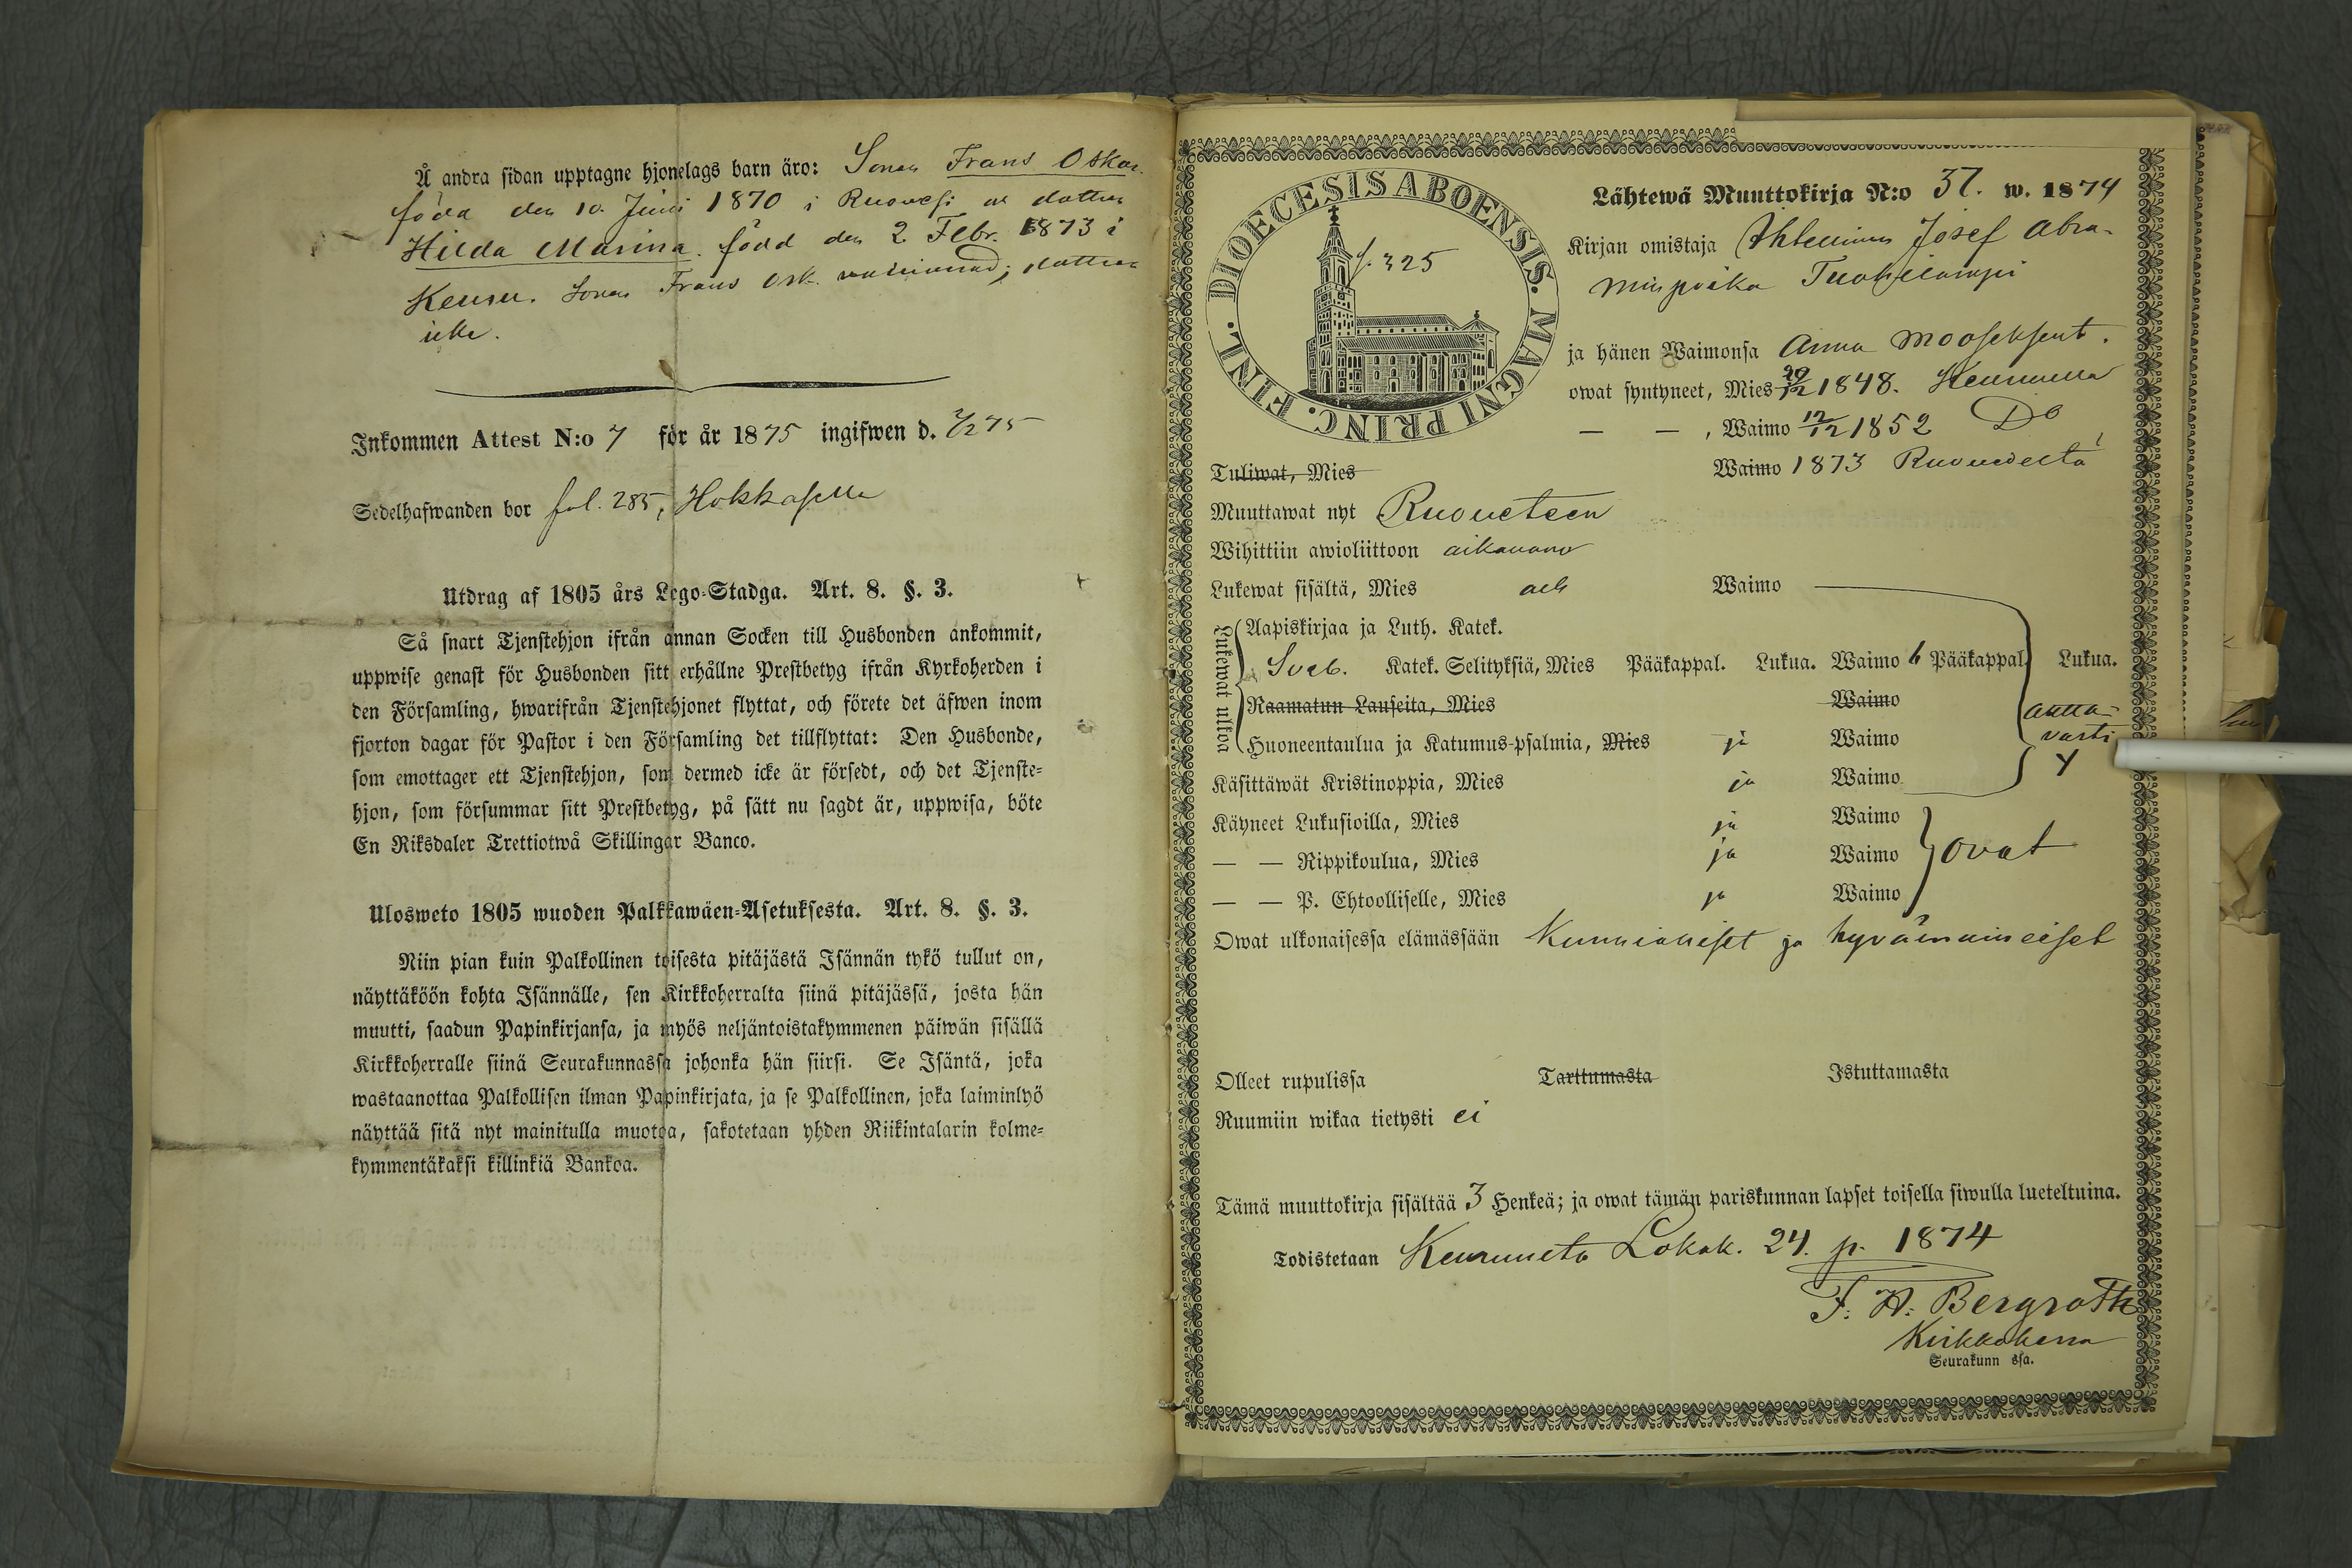 Å andra sidan upptagne hjonelags barn äro: Sonen Frans Oskar.
född den 10. Juni 1870 i Ruovesi o. dottren
Hilda Marina. född den 2 Febr. 1873 i
Keuru. Sonen Frans Osk. vaccinerad; dottren
icke.
Inkommen Attest N:o 7 för år 1875 ingifwen d. 7/2 75
Sedelhafwanden bor fol. 285, Hokkaselle
Utdrag af 1805 års Lego-Stadga. Art. 8. §. 3.
Så snart Tjenstehjon ifrån annan Socken till Husbonden ankommit,
uppwise genast för Husbonden sitt erhållne Prestbetyg ifrån Kyrkoherden i
den Församling, hwarifrån Tjenstehjonet flyttat, och förete det äfwen inom
fjorton dagar för Pastor i den Församling det tillflyttat: Den Husbonde,
som emottager ett Tjenstehjon, som dermed icke är försedt, och det Tjenste-
hjon, som försummar sitt Prestbetyg, på sätt nu sagdt är, uppwisa, böte
En Riksdaler Trettiotwå Skillingar Banco.
Ulosweto 1805 wuoden Palkkawäen-Asetuksesta. Art. 8. §. 3.
Niin pian kuin Palkollinen toisesta pitäjästä Isännän tykö tullut on,
näyttäköön kohta Isännälle, sen Kirkkoherralta siinä pitäjässä, josta hän
muutti, saadun Papinkirjansa, ja myös neljäntoistakymmenen päiwän sisällä
Kirkkoherralle siinä Seurakunnassa johonka hän siirsi. Se Isäntä, joka
wastaanottaa Palkollisen ilman Papinkirjata, ja se Palkollinen, joka laiminlyö
näyttää sitä nyt mainitulla muotoa, sakotetaan yhden Riikintalarin kolme-
kymmentäkaksi killinkiä Bankoa.
DIOECESIS ABOENSIS. MAGNI PRINC. FINL.
f. 325
Lähtewä Muuttokirja N:o 37. w. 1874
Kirjan omistaja Josef Abra-
minpoika Tuohilampi
ja hänen Waimonsa Anna Mooseksent.
owat syntyneet, Mies 1848. Keuruulla
— — , Waimo 12/12 1852 Do
Tuliwat, Mies Waimo 1873 Ruovedeltä
Muuttawat nyt Ruoveteen
Wihittiin awioliittoon aikanano
Lukewat sisältä, Mies Waimo
Lukewat ulkoa
Aapiskirjaa ja Luth. Katek.
Sveb. Katek. Selityksiä, Mies Pääkappal. Lukua. Waimo 6 Pääkappal. Lukua.
Raamatun Lauseita, Mies Waimo
autta-
vasti
Huoneentaulua ja Katumus-psalmia, Mies ja Waimo
Käsittäwät Kristinoppia, Mies ja Waimo
Käyneet Lukusioilla, Mies ja Waimo
— — Rippikoulua, Mies ja Waimo ovat
— — P. Ehtoolliselle, Mies ja Waimo
Owat ulkonaisessa elämässään Kunnialliset ja hyvämaineiset
Olleet rupulissa Tarttumasta Istuttamasta
Ruumiin wikaa tietysti ei
Tämä muuttokirja sisältää 3 Henkeä; ja owat tämän pariskunnan lapset toisella siwulla lueteltuina.
Todistetaan Keuruulta Lokak. 24. p. 1874
F. H. Bergroth
Kirkkoherra
Seurakunn ssa.